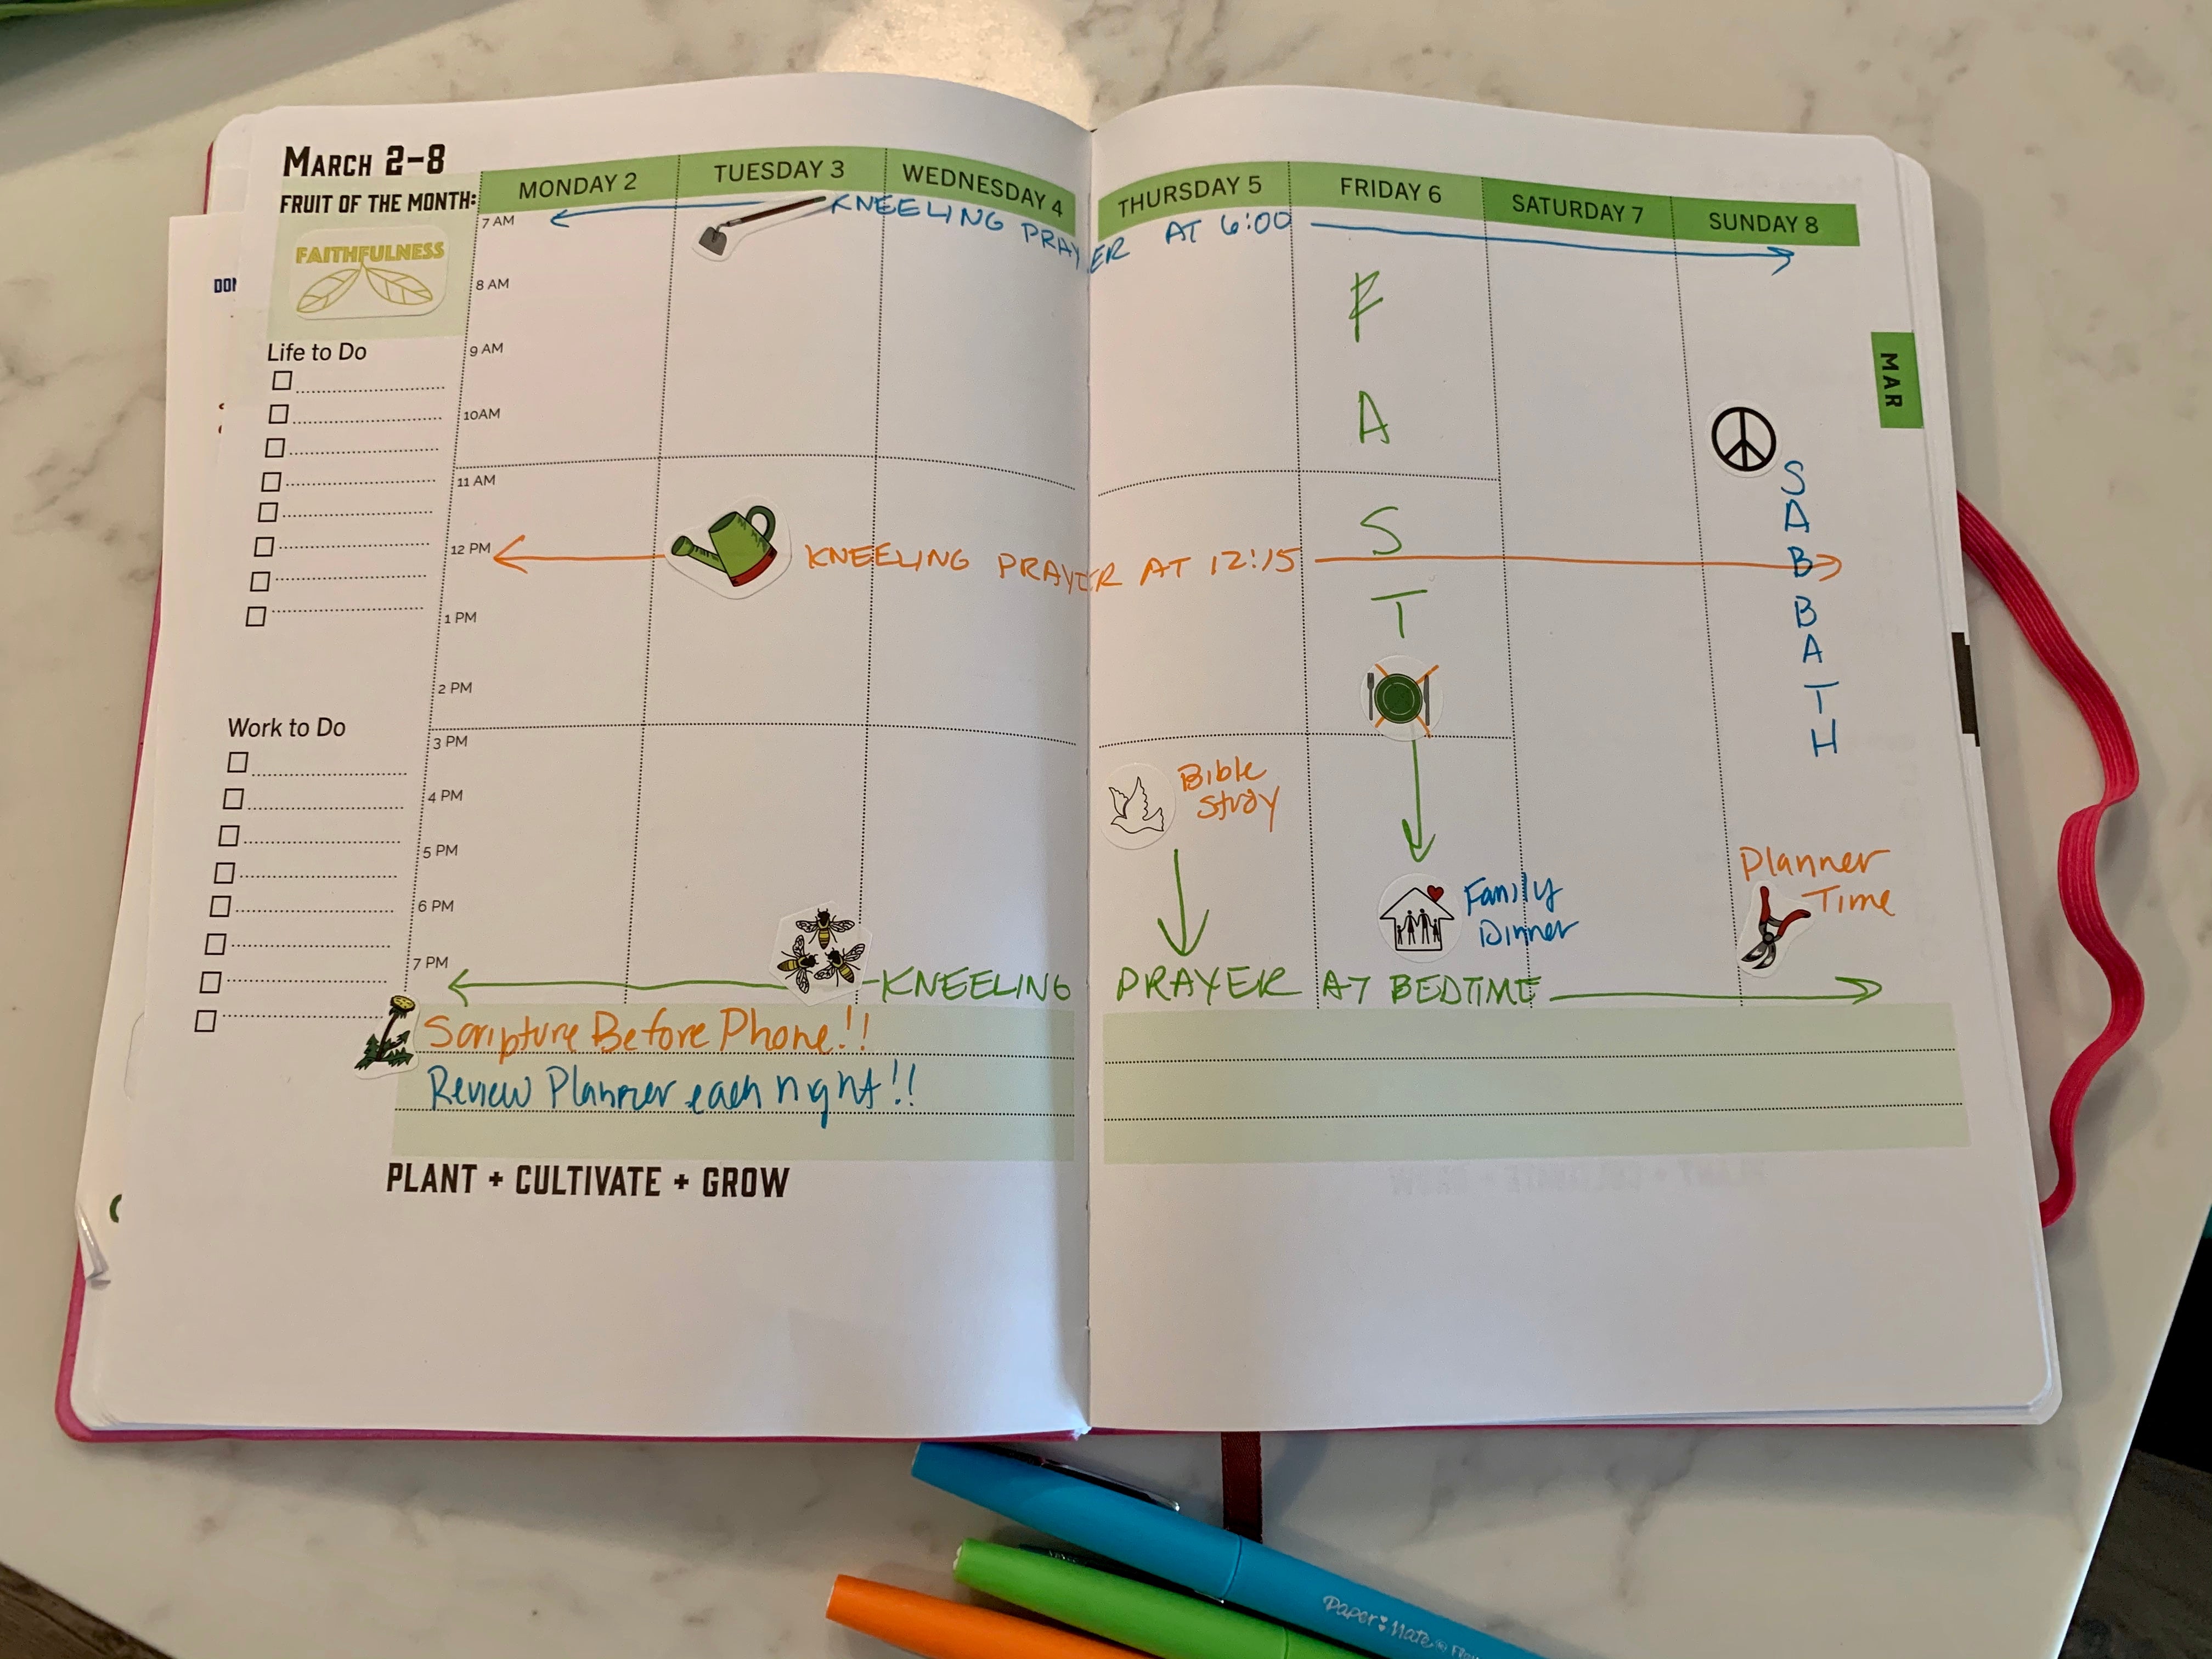 MARCH 2-8
FRUIT OF THE MONTH:
FAITHFULNESS
MONDAY 2
TUESDAY 3
WEDNESDAY 4
THURSDAY 5
FRIDAY 6
SATURDAY 7
SUNDAY 8
MAR
KNEELING PRAYER AT 6:00
7 AM
8 AM
9 AM
10AM
11 AM
12 PM
1 PM
2 PM
3 PM
4 PM
5 PM
6 PM
7 PM
Life to Do
Work to Do
FAST
SABBATH
KNEELING PRAYER AT 12:15
Bible
Study
Family
Dinner
Planner
Time
KNEELING PRAYER AT BEDTIME
Scripture Before Phone!!
Review Planner each night!!
PLANT + CULTIVATE + GROW
Paper Mate